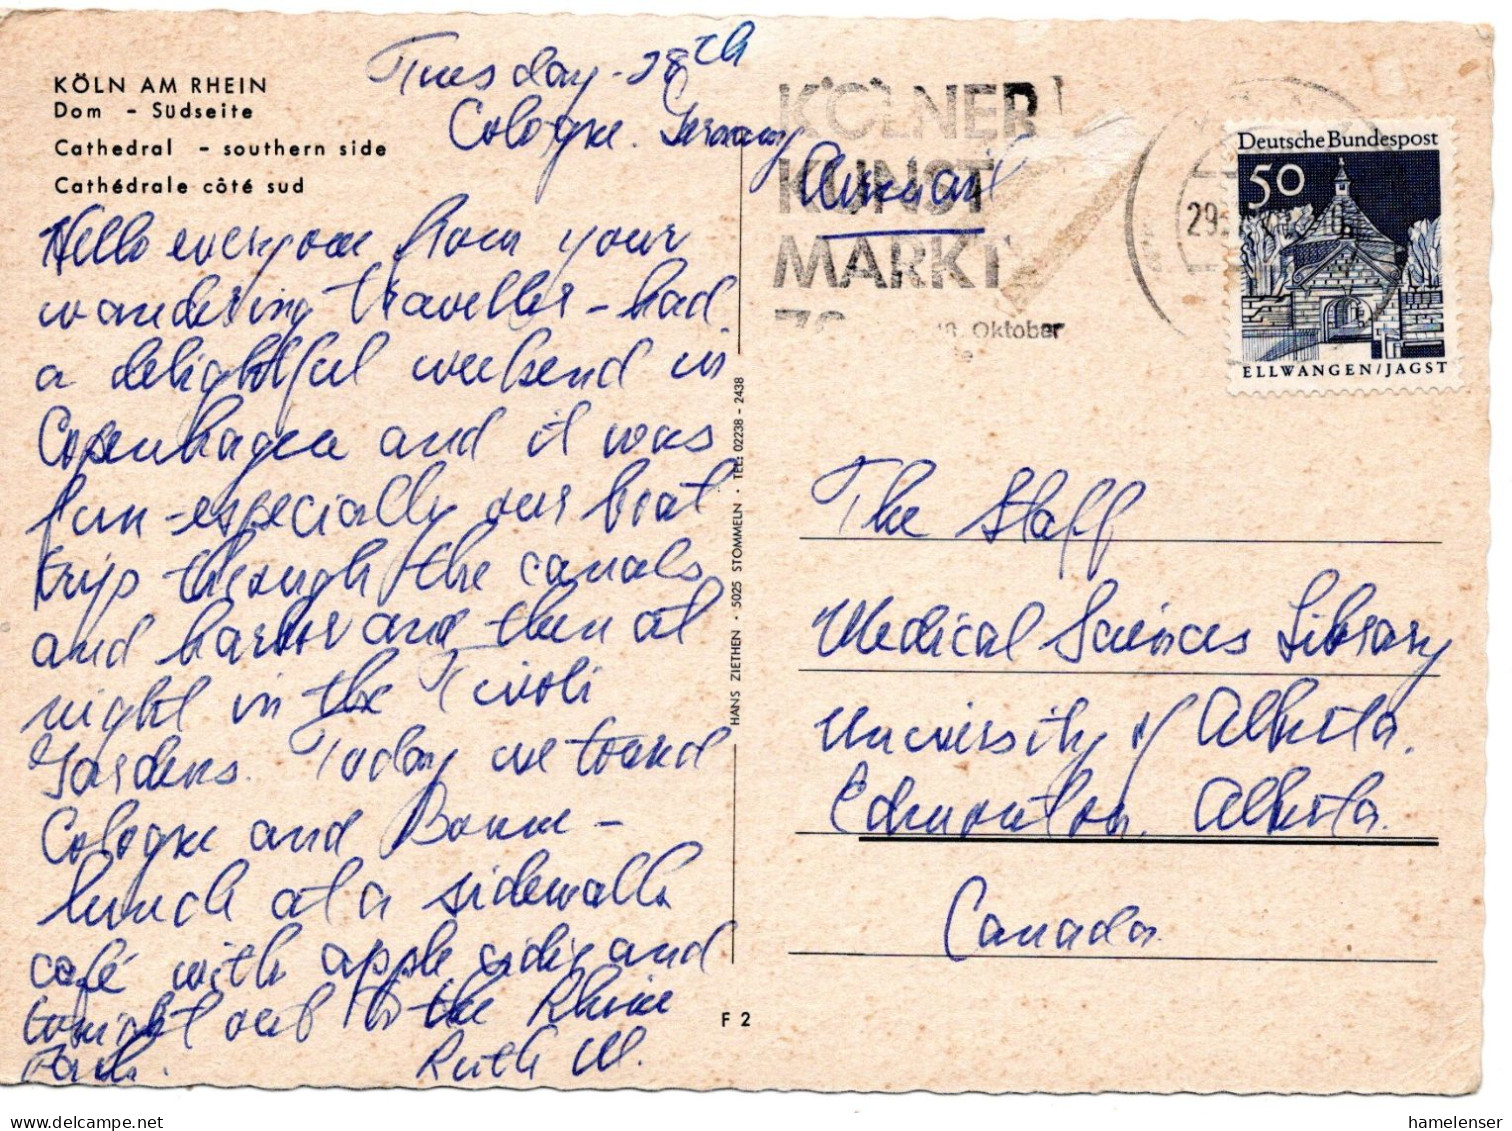 KÖLN AM RHEIN
Dom - Südseite
Cathedral - southern side
Cathédrale côté sud
Tuesday - 28th
Cologne. Germany
Hello everyone from your
wandering traveller - had
a delightful weekend in
Copenhagen and it was
fun - especially our boat
trip through the canals
and harbor and then at
night in the Tivoli
Gardens. Today we toured
Cologne and Bonn -
lunch at a sidewalk
café with apple cider and
tonight out to the Rhine
Park.
Ruth M.
HANS ZIETHEN · 5025 STOMMELN · TEL: 02238 - 2438
F 2
KÖLNER
KUNST
MARKT
Oktober
Air mail
29.
Deutsche Bundespost
50
ELLWANGEN/JAGST
The Staff
Medical Sciences Library
University of Alberta.
Edmonton. Alberta.
Canada.
hamelenser
delcampe.net